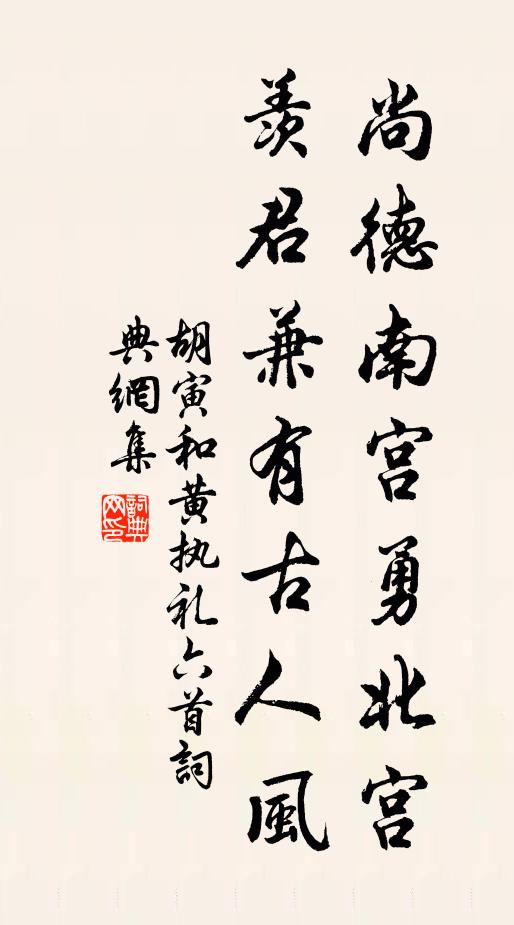 尚德南宫勇北宫
羡君兼有古人風
胡寅和黄执礼六首詞
典網集
詞典网印